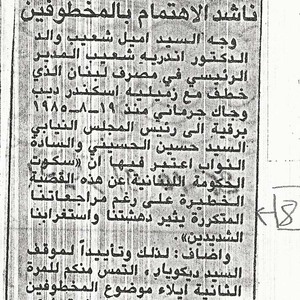 ناشد الاهتمام بالمخطوفين
وجه السيد اميل شعيب والد
الدكتور اندريه شعيب المدير
الرئيسي في مصرف لبنان الذي
خطف مع زميليه اسكندر ديب
وجاك جرماني منذ ١٩ــ٨ــ١٩٨٥
برقية الى رئيس المجلس النيابي
السيد حسين الحسيني والسادة
النواب اعتبر فيها ان «سكوت
الحكومة اللبنانية عن هذه القضية
الخطيرة على رغم مراجعاتنا
المتكررة يثير دهشتنا واستغرابنا
الشديدين».
واضاف: لذلك وتأييداً لموقف
السيد ديكويار، التمس منكم للمرة
الثانية ايلاء موضوع المخطوفين